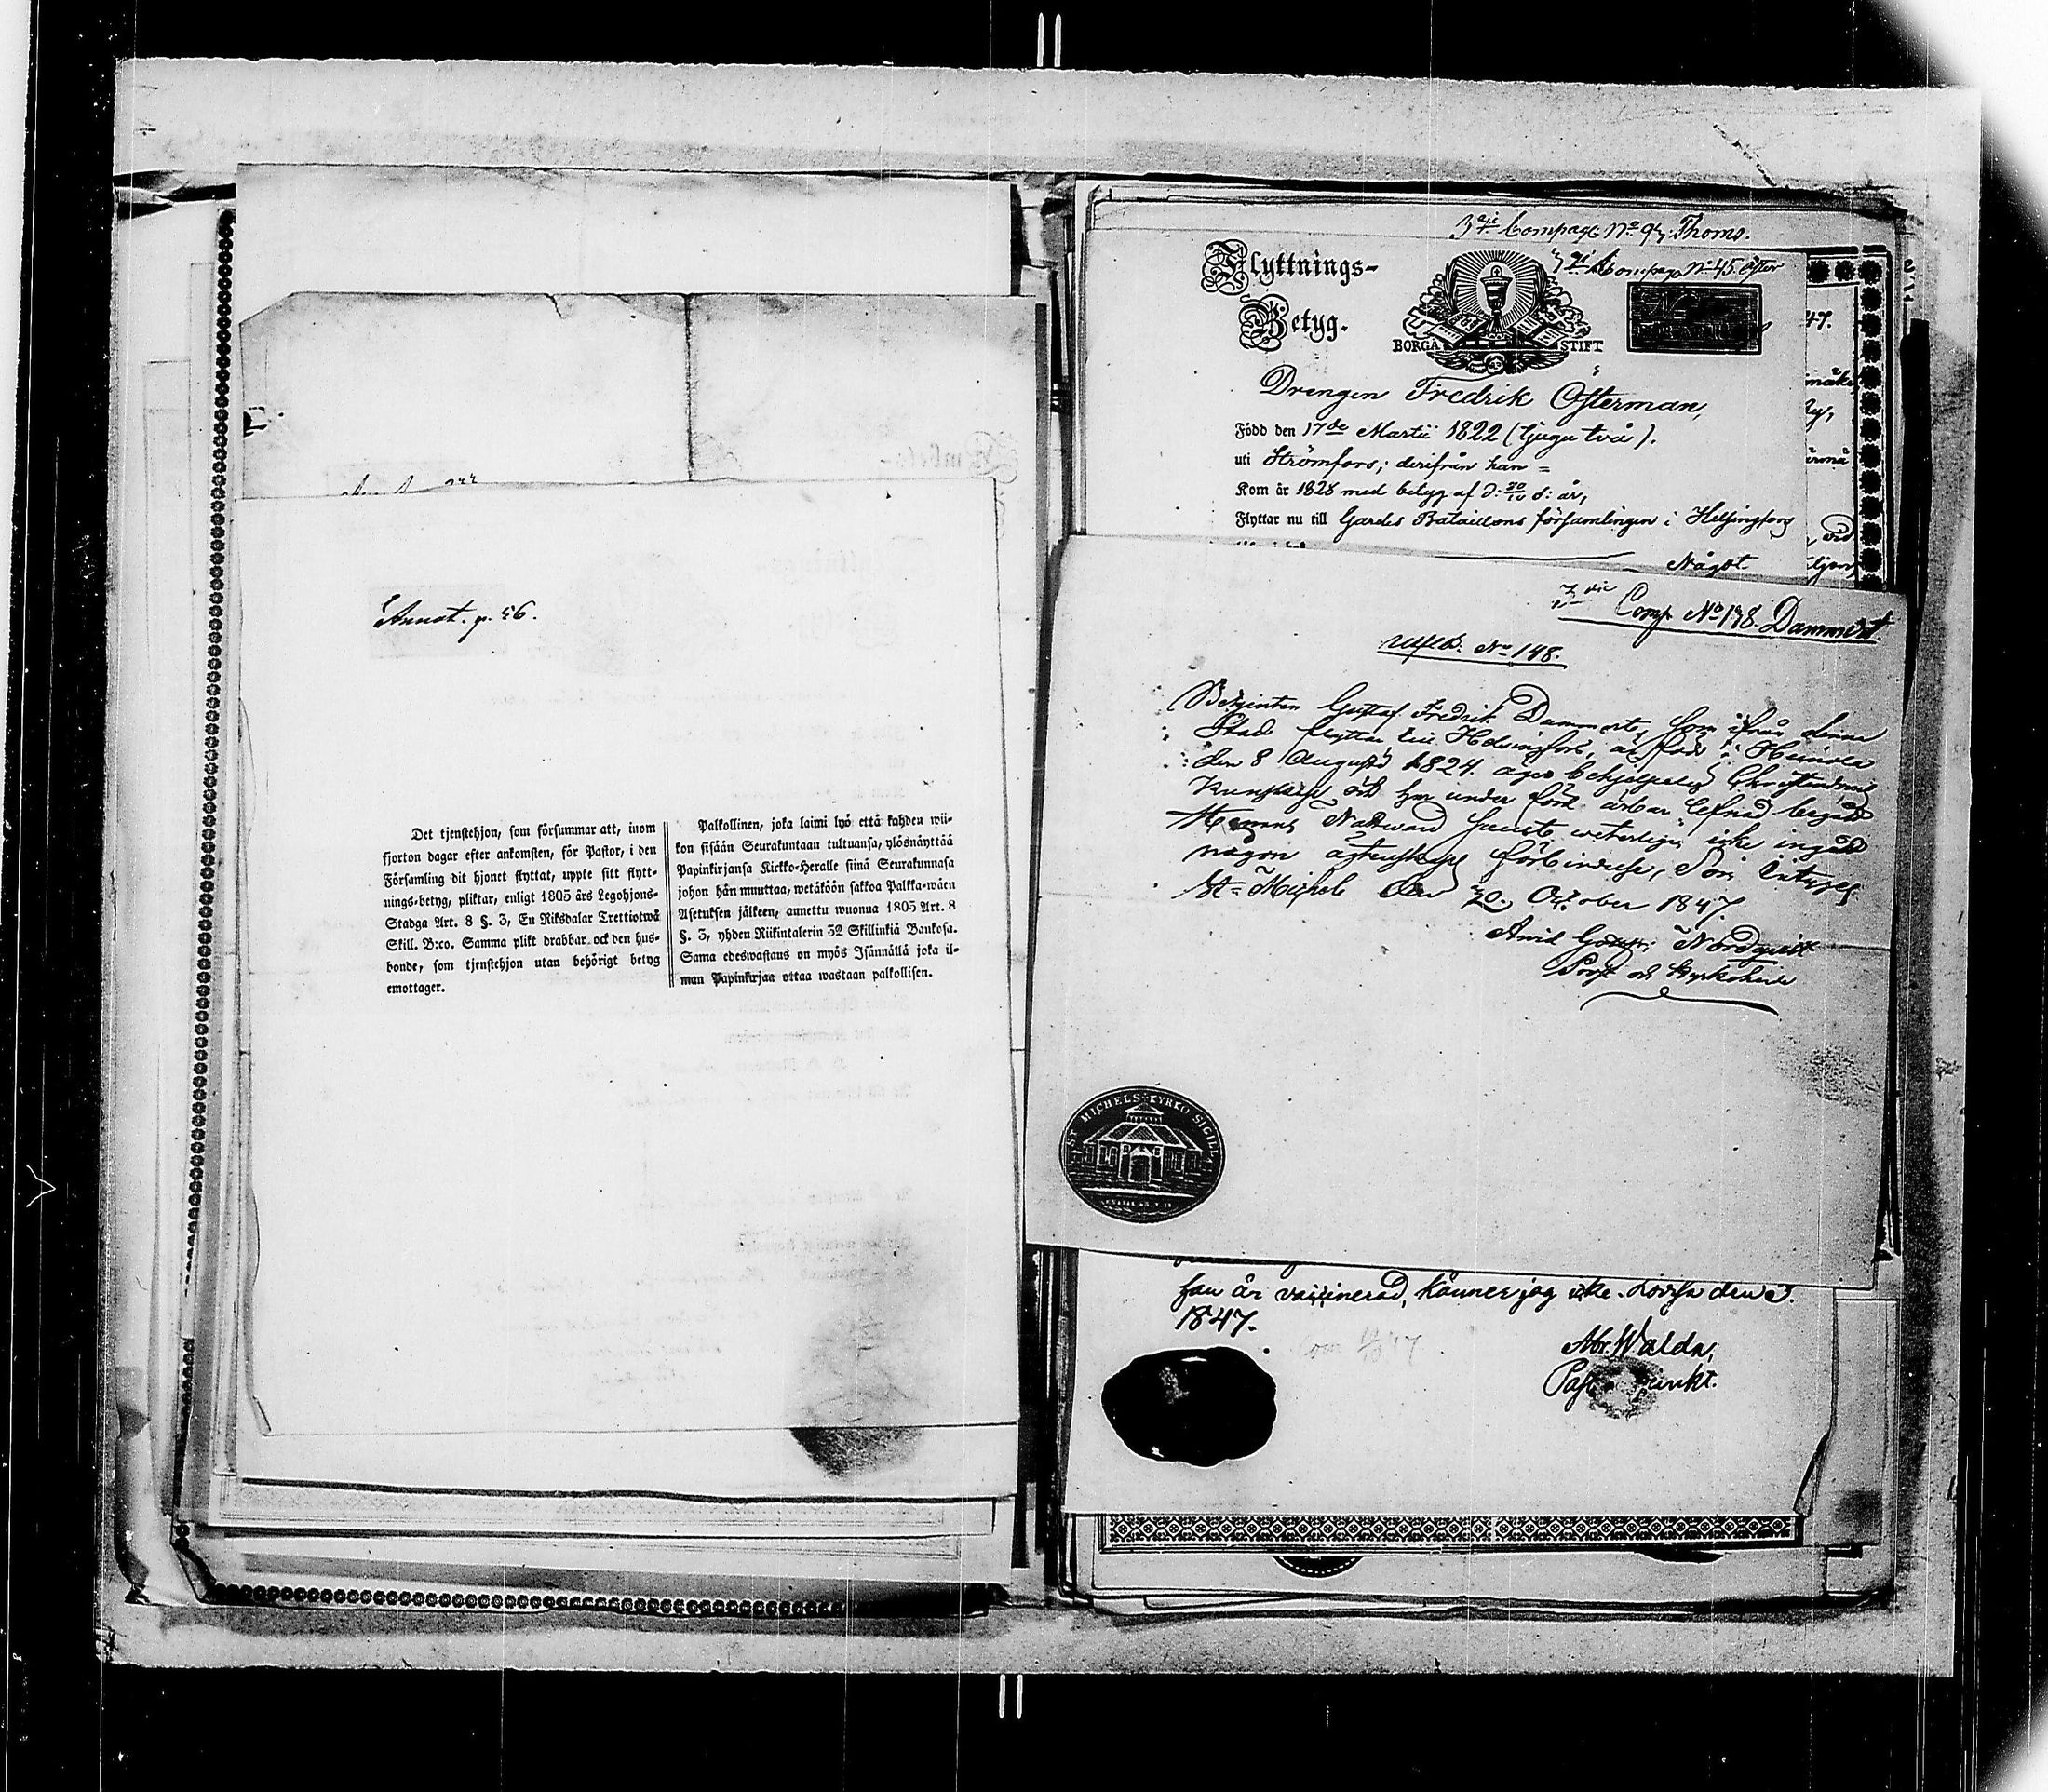 Annot. p. 56.
Det tjenstehjon, som försummar att, inom
fjorton dagar efter ankomsten, för Pastor, i den
Församling dit hjonet flyttat, uppte sitt flytt-
nings-betyg, pliktar, enligt 1805 års Legohjons-
Stadga Art. 8 §. 3, En Riksdalar Trettiotwå
Skill. B:co. Samma plikt drabbar ock den hus-
bonde, som tjenstehjon utan behörigt betyg
emottager.
Palkollinen, joka laimi lyö että kahden wii-
kon sisään Seurakuntaan tultuansa, ylösnäyttää
Papinkirjansa Kirkko-Heralle siinä Seurakunnasa
johon hän muuttaa, wetäköön sakkoa Palkka-wäen
Asetuksen jälkeen, annettu wuonna 1805 Art. 8
§. 3, yhden Riikintalerin 32 Skillinkiä Bankosa.
Sama edeswastaus on myös Isännällä joka il-
man Papinkirjaa ottaa wastaan palkollisen.
Compage No 97. Thoms.
Compage No 45. Öster
Flyttnings-
Betyg.
BORGÅ STIFT
47.
Drengen Fredrik Österman,
Född den 17de Martii 1822 (tjugu två).
uti Strömfors; derifrån han =
Kom år 1828 med betyg af d: 20/10 s: år,
Flyttar nu till Gardes Bataillons församlingen i Helsingfors
Något
Comp No 138. Dammert.
No 148.
Betjenten Gustaf Fredrik Dammert, som ifrån denna
Stad flyttar till Helsingfors, är född i Heinola
den 8 Augusti 1824. äger behjelpelig Christendoms
Kunskap och har under fördt ärbar lefnad begått
Herrans Nattvard samt veterligen icke ingått
någon äktenskaps förbindelse, Som intygas
St Michels den 20. October 1847.
Nordqvist
Prost och Kyrkoherde
ST MICHELS KYRKO SIGILL
han är vaccinerad, känner jag icke. Lovisa den 3.
1847.
Abr. Walda,